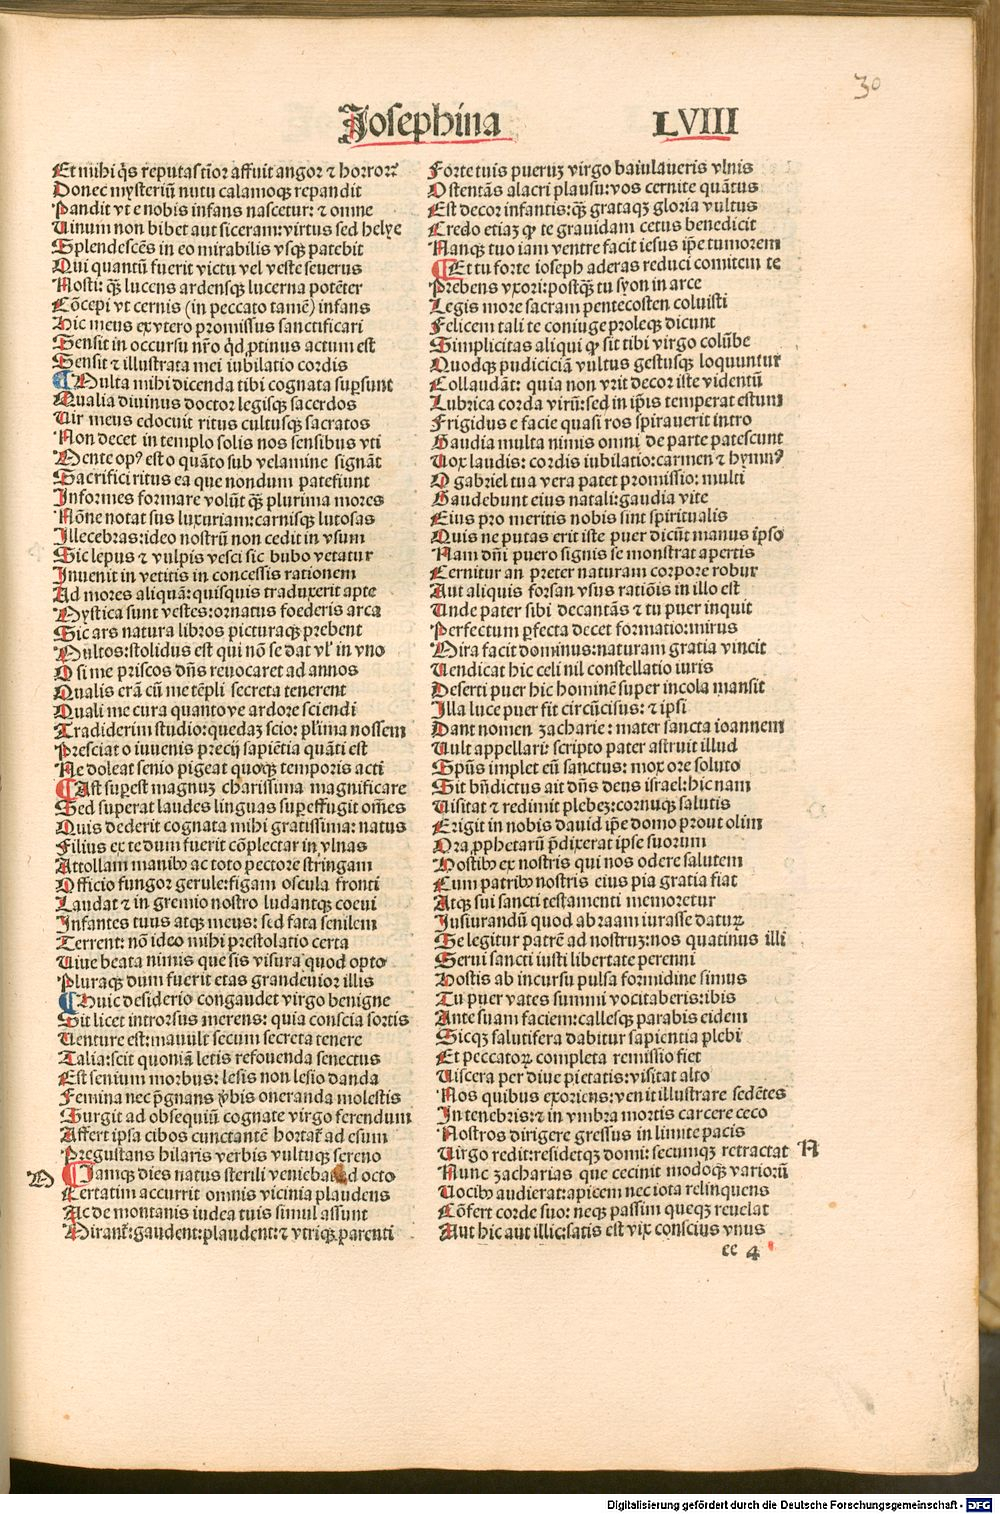 30
Josephina LVIII
Et mihi q̃s reputas tĩor affuit angor ⁊ horroꝝ
Donec mysteriũ nutu calamoqꝫ repandit
Pandit vt e nobis infans nascetur: ⁊ omne
Uinum non bibet aut siceram: virtus sed helye
Splendescẽs in eo mirabilis vsqꝫ patebit
Qui quantũ fuerit victu vel veste seuerus
Nosti: q̃ꝫ lucens ardensqꝫ lucerna potẽter
Cõcepi vt cernis (in peccato tamẽ) infans
Hic meus ex vtero promissus sanctificari
Sensit in occursu nr̃o q̇d ꝓtinus actum est
Sensit ⁊ illustrata mei iubilatio cordis
¶ Multa mihi dicenda tibi cognata suꝑsunt
Qualia diuinus doctor legisqꝫ sacerdos
Uir meus edocuit ritus cultusqꝫ sacratos
Non decet in templo solis nos sensibus vti
Mente opꝰ est o quãto sub velamine signãt
Sacrifici ritus ea que nondum patefiunt
Informes formare volũt q̃ꝫ plurima mores
Nõne notat sus luxuriam: carnisqꝫ lutosas
Illecebras: ideo nostrũ non cedit in vsum
Sic lepus ⁊ vulpis vesci sic bubo vetatur
Inuenit in vetitis in concessis rationem
Ad mores aliquã: quisquis traduxerit apte
Mystica sunt vestes: ornatus foederis arca
Sic ars natura libros picturaqꝫ prebent
Multos: stolidus est qui nõ se dat vl' in vno
O si me priscos dñs reuocaret ad annos
Qualis erã cũ me tẽpli secreta tenerent
Quali me cura quantoue ardore sciendi
Tradiderim studio: quedaꝫ scio: pl'ima nossem
Presciat o iuuenis precij sapiẽtia quãti est
Ne doleat senio pigeat quoqꝫ temporis acti
¶ Ast suꝑest magnuꝫ charissima magnificare
Sed superat laudes linguas suꝑeffugit om̃es
Quis dederit cognata mihi gratissima: natus
Filius ex te dum fuerit cõplectar in vlnas
Attollam manibꝰ ac toto pectore stringam
Officio fungor gerule: figam oscula fronti
Laudat ⁊ in gremio nostro ludantqꝫ coeui
Infantes tuus atqꝫ meus: sed fata senilem
Terrent: nõ ideo mihi prestolatio certa
Uiue beata nimis que sis visura quod opto
Pluraqꝫ dum fuerit etas grandeuior illis
¶ Huic desiderio congaudet virgo benigne
Sit licet introrsus merens: quia conscia sortis
Uenture est: mauult secum secreta tenere
Talia: scit quoniã letis refouenda senectus
Est senium morbus: lesis non lesio danda
Femina nec p̃gnans v̾bis oneranda molestis
Surgit ad obsequiũ cognate virgo ferendum
Affert ipsa cibos cunctantẽ hortat̃ ad esum
Pregustans hilaris verbis vultuqꝫ sereno
¶ Iamqꝫ dies natus sterili veniebat ad octo
Certatim accurrit omnis vicinia plaudens
Ac de montanis iudea tuis simul assunt
Mirant̃: gaudent: plaudent: ⁊ vtriqꝫ parenti
M
Forte tuis pueruꝫ virgo baiulaueris vlnis
Ostentãs alacri plausu: vos cernite quãtus
Est decor infantis: q̃ꝫ grataqꝫ gloria vultus
Credo etiaꝫ ꝙ te grauidam cetus benedicit
Namqꝫ tuo iam ventre facit iesus ip̃e tumorem
¶ Et tu forte ioseph aderas reduci comitem te
Prebens vxori: postq̃ꝫ tu syon in arce
Legis more sacram pentecosten coluisti
Felicem tali te coniuge proleqꝫ dicunt
Simplicitas aliqui ꝙ sit tibi virgo colũbe
Quodqꝫ pudiciciã vultus gestusqꝫ loquuntur
Collaudãt: quia non vrit decor iste videntũ
Lubrica corda virũ: sed in ip̃is temperat estum
Frigidus e facie quasi ros spirauerit intro
Gaudia multa nimis omni de parte patescunt
Uox laudis: cordis iubilatio: carmen ⁊ hymnꝰ
O gabriel tua vera patet promissio: multi
Gaudebunt eius natali: gaudia vite
Eius pro meritis nobis sint spiritualis
Quis ne putas erit iste puer dicũt manus ip̃so
Nam dñi puero signis se monstrat apertis
Cernitur an preter naturam corpore robur
Aut aliquis forsan vsus ratiõis in illo est
Unde pater sibi decantãs ⁊ tu puer inquit
Perfectum ꝑfecta decet formatio: mirus
Mira facit dominus: naturam gratia vincit
Uendicat hic celi nil constellatio iuris
Deserti puer hic hominẽ super incola mansit
Illa luce puer fit circũcisus: ⁊ ipsi
Dant nomen zacharie: mater sancta ioannem
Uult appellari: scripto pater astruit illud
Sp̃us implet eũ sanctus: mox ore soluto
Sit bñdictus ait dñs deus israel: hic nam
Uisitat ⁊ redimit plebeꝫ: cornuqꝫ salutis
Erigit in nobis dauid ip̃e domo prout olim
Ora ꝓphetarũ p̃dixerat ipse suorum
Hostibꝰ ex nostris qui nos odere salutem
Cum patribꝰ nostris eius pia gratia fiat
Atqꝫ sui sancti testamenti memoretur
Iusiurandũ quod abraam iurasse datuꝝ
Se legitur patrẽ ad nostruꝫ: nos quatinus illi
Serui sancti iusti libertate perenni
Hostis ab incursu pulsa formidine simus
Tu puer vates summi vocitaberis: ibis
Ante suam faciem: callesqꝫ parabis eidem
Sicqꝫ salutifera dabitur sapientia plebi
Et peccatoꝝ completa remissio fiet
Uiscera per diue pietatis: visitat alto
Nos quibus exoriens: venit illustrare sedẽtes
In tenebris: ⁊ in vmbra mortis carcere ceco
Nostros dirigere gressus in limite pacis
Uirgo redit: residetqꝫ domi: secumqꝫ retractat
N
Nunc zacharias que cecinit modoqꝫ variorũ
Uocibꝰ audierat: apicem nec iota relinquens
Cõfert corde suo: neqꝫ passim queqꝫ reuelat
Aut hic aut illic: satis est vix conscius vnus
ee 4
Digitalisierung gefördert durch die Deutsche Forschungsgemeinschaft - DFG